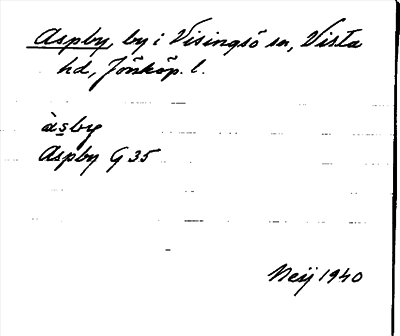 Aspby, by i Visingsö sn, Vista
hd, Jönköp. l.
às̱by
Aspby G 35
Neij 1940